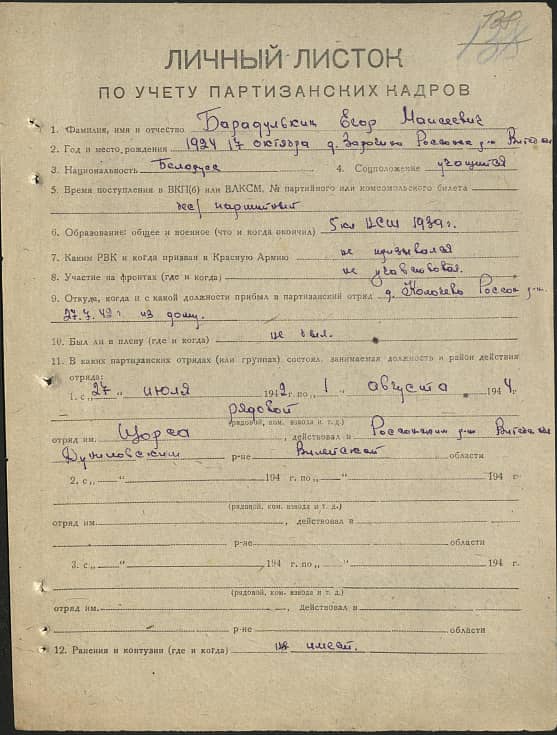 138
ЛИЧНЫЙ ЛИСТОК
ПО УЧЕТУ ПАРТИЗАНСКИХ КАДРОВ
1. Фамилия, имя и отчество Барадулькин Егор Моисеевич
2. Год и место рождения 1924 17 октября д. Заросино Россонск. р-н Витебская
3. Национальность Белорусс 4. Соцположение учащийся
5. Время поступления в ВКП(б) или ВЛКСМ, № партийного или комсомольского билета
бес/партийный
6. Образование: общее и военное (что и когда окончил) 5 кл НСШ 1939 г.
7. Каким РВК и когда призван в Красную Армию не призывался
8. Участие на фронтах (где и когда) не участвовал.
9. Откуда, когда и с какой должности прибыл в партизанский отряд д. Россон р-н.
27.7.42 г из дому.
10. Был ли в плену (где и когда) не был.
11. В каких партизанских отрядах (или группах) состоял, занимаемая должность и район действия
отряда:
1. с „27 “ июля 1942 г. по „ 1 “ августа 1944 г.
рядовой
(рядовой, ком. взвода и т. д.)
отряд им. Щорса , действовал в Россонским р-не Витебская
Дуниловским р-не Вилейской области
2. с „ “ 194 г. по „ “ 194 г.
(рядовой, ком. взвода и т. д.)
отряд им. , действовал в
р-не области
3. с „ “ 194 г. по „ “ 194 г.
(рядовой, ком. взвода и т. д.)
отряд им. , действовал в
р-не области
12. Ранения и контузии (где и когда) не имеет.